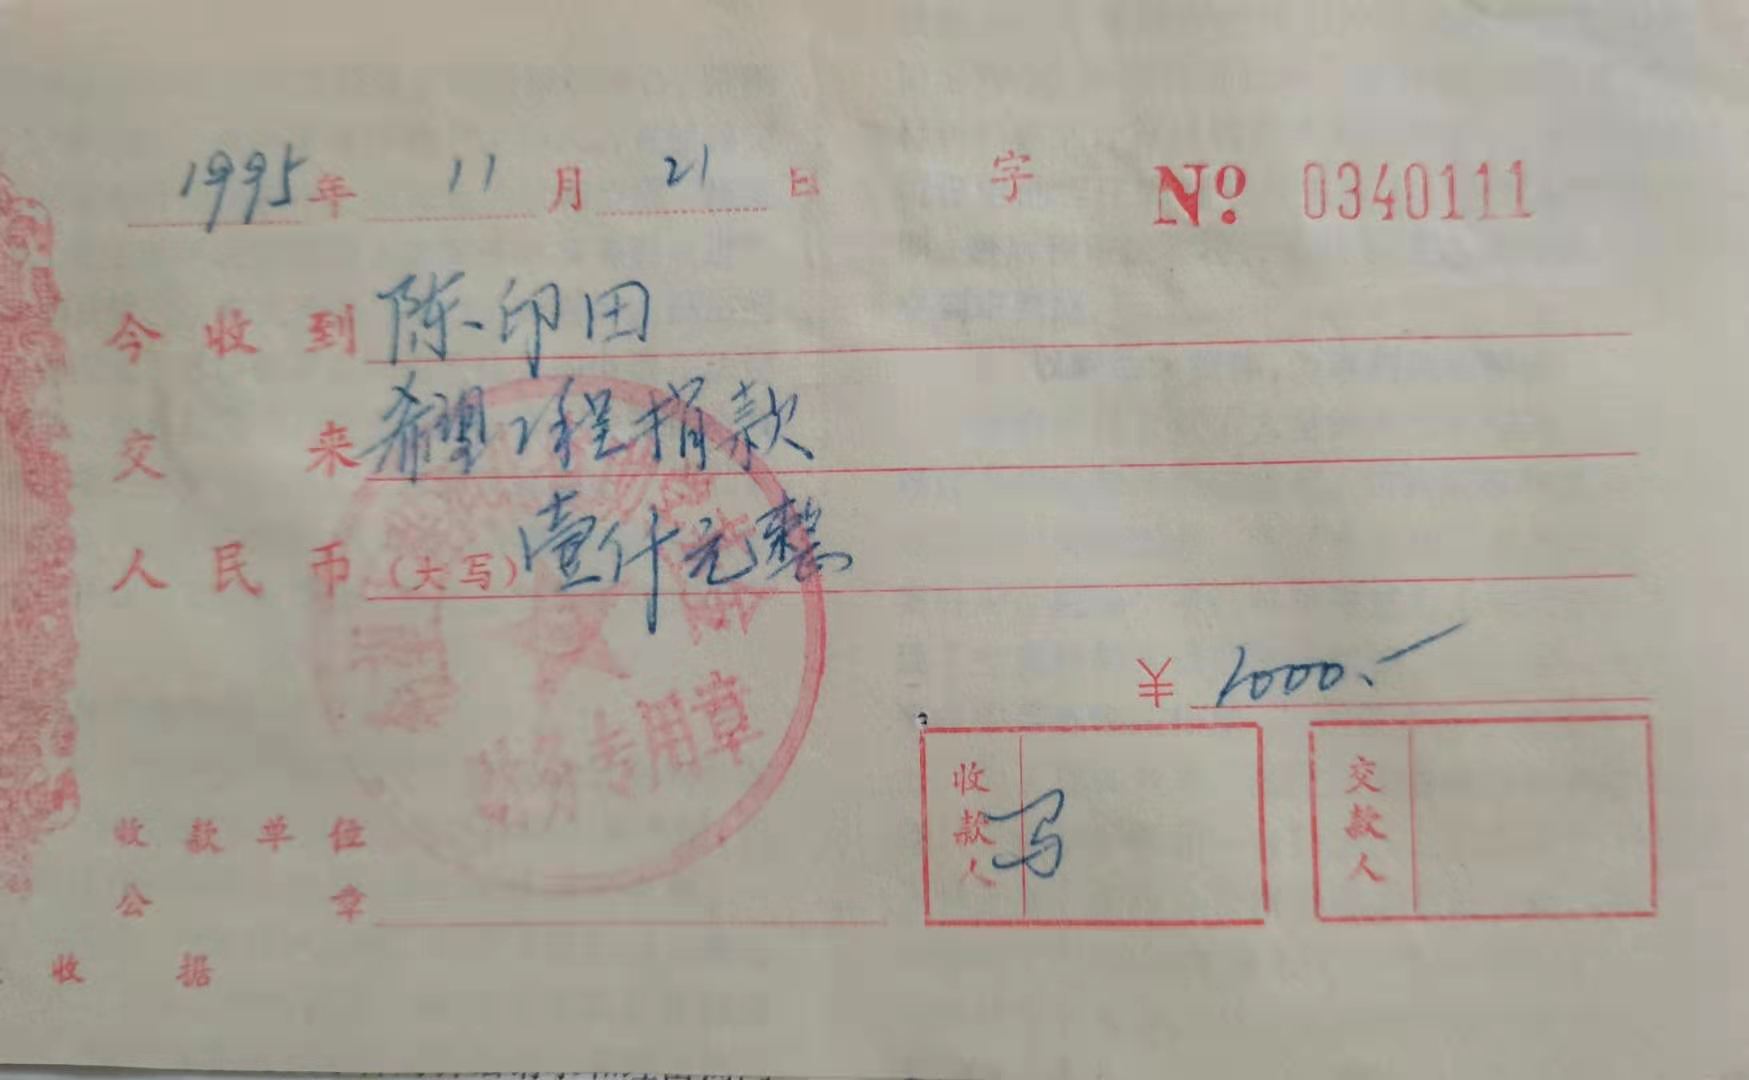 1995年 11 月 21 日 字 No. 0340111
今收到 陈印田
交来 希望工程捐款
人民币(大写) 壹仟元整
￥ 1000.-
财务专用章
收款人 马
交款人
收款单位
公章
收据